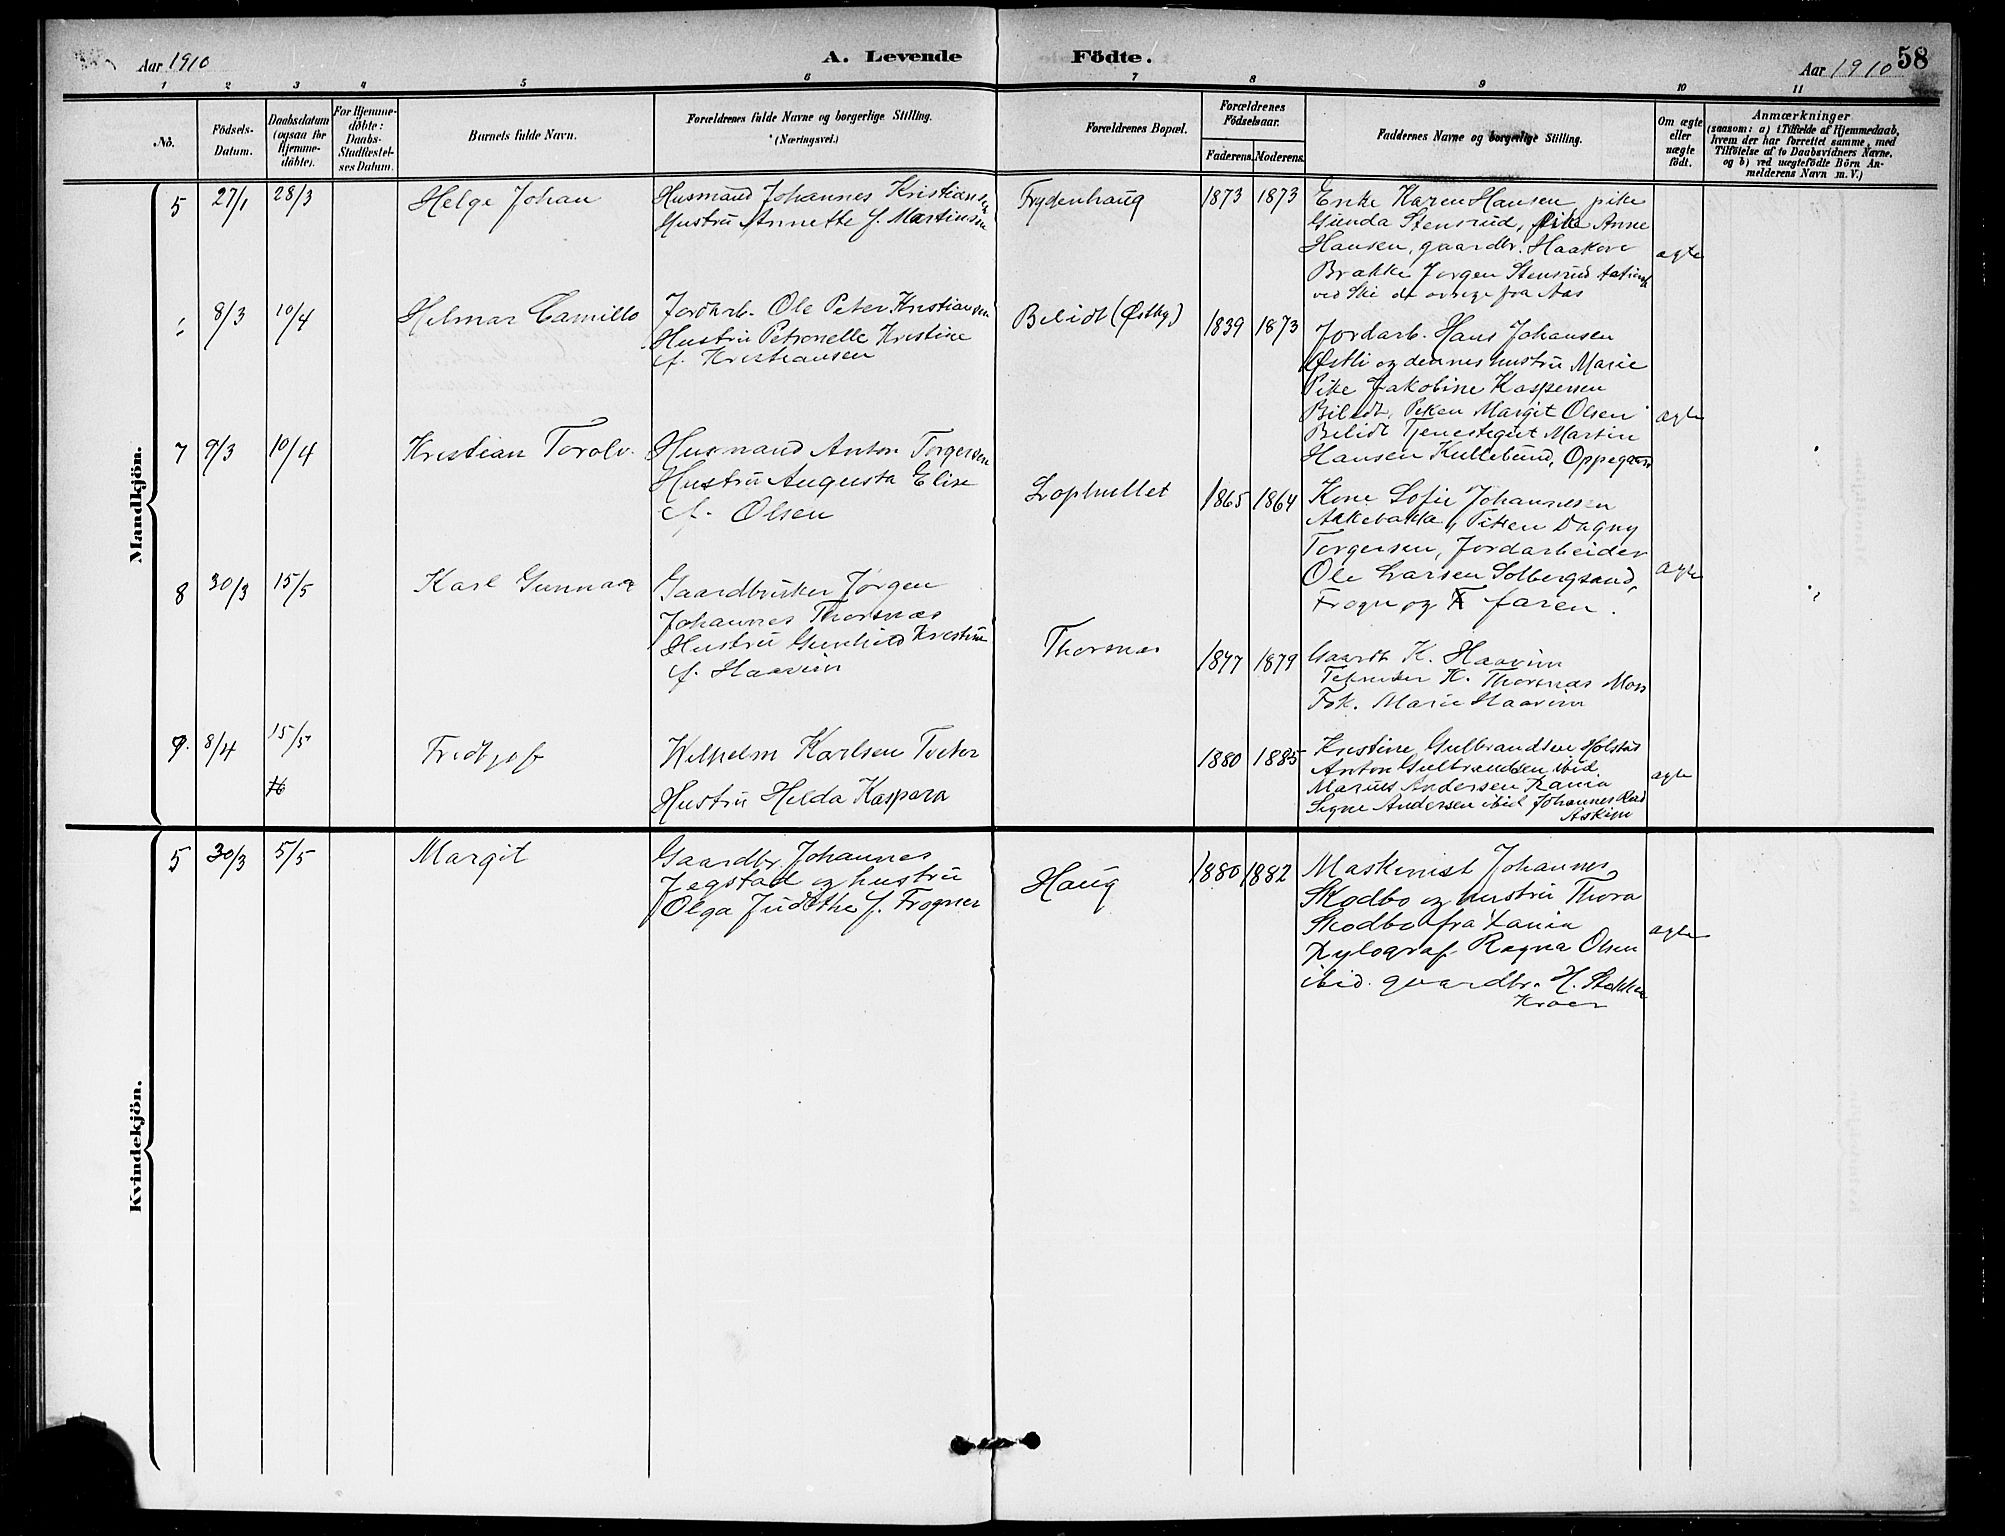 Aar 1910
A. Levende Födte.
Aar 1910
58
1 2 3 4 5 6 7 8 9 10 11
No.
Födsels-
Datum.
Daabsdatum
(ogsaa for
Hjemme-
döbte).
For Hjemme-
döbte:
Daabs-
Stadfæstel-
ses Datum.
Barnets fulde Navn.
Forældrenes fulde Navne og borgerlige Stilling.
(Næringsvei.)
Forældrenes Bopæl.
Forældrenes
Födselsaar.
Faderens. Moderens.
Faddernes Navne og borgerlige Stilling.
Om ægte
eller
uægte
födt.
Anmærkninger
(saasom: a) i Tilfælde af Hjemmedaab,
hvem der har forrettet samme, med
Tilföielse af to Daabsvidners Navne,
og b) ved uægtefödte Börn An-
melderens Navn m. V.)
Mandkjön.
5 27/1 28/3 Helge Johan
Husmand Johannes Kristiansen
Hustru Annette f. Martinsen
Frydenhaug
1873 1873
Enke Karen Hansen, pike
Gunda Stensrud, pike Anne
Hansen, gaardbr. Haakon
Brække Jørgen Stensrud
ved Ski de øvrige fra Aas
ægte
8/3 10/4 Helmar Camillo
Jordarb. Ole Peter Kristiansen
Hustru Petronelle Kristine
f. Kristiansen
Bilidt (Østby)
1839 1873
Jordarb. Hans Johansen
Østli og dennes hustru Marie
Pike Jakobine Kaspersen
Bilidt, Piken Margit Olsen
Bilidt Tjenestegut Martin
Hansen Kullebund, Oppegaard
ægte
7 9/3 10/4 Kristian Torolv.
Husmand Anton Torgersen
Hustru Augusta Elise
f. Olsen
Lophullet
1865 1864
Kone Sofie Johannesen
Akkebakke, Piken Dagny
Torgersen, Jordarbeider
Ole Larsen Solbergsand,
Frogn og faren.
ægte
8 30/3 15/5 Karl Gunnar
Gaardbruker Jørgen
Johannes Thorsnæs
Hustru Gunhild Kristine
f. Haavim
Thorsnæs
1877 1879
Gaardb K. Haavim
K. Thorsnæs Moss
Frk. Marie Haavim
9. 8/4 15/5 Fridtjof
Wilhelm Karlsen Tveter
Hustru Hilda Kaspara
1880 1885
Kristine Gulbrandsen Holstad
Anton Gulbrandsen ibid
Marius Andersen Kania
Signe Andersen ibid Johannes
Askim
ægte
Kvindekjön.
5 30/3 5/5 Margit
Gaardbr. Johannes
Jegstad og hustru
Olga Judithe f. Frogner
Haug
1880 1882
Maskinist Johannes
Skodbo og hustru Thora
Skodbo fra Xania
Xylograf Ragna Olsen
ibid. gaardbr. H. Stokken
Kroer
ægte